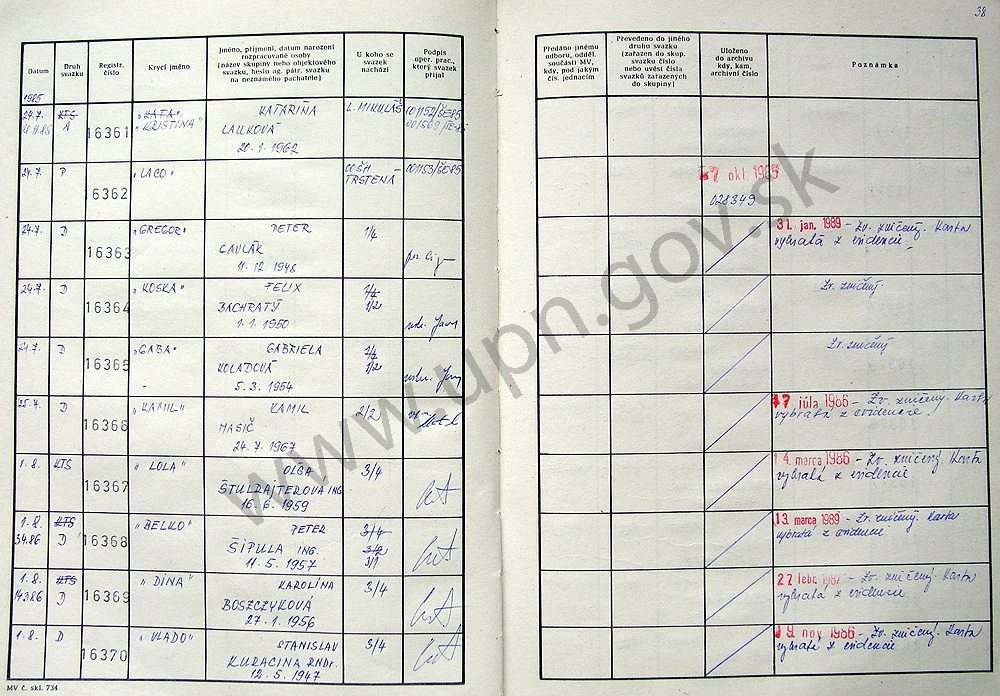 38
Datum
Druh svazku
Registr. číslo
Krycí jméno
Jméno, příjmení, datum narození
rozpracované osoby
(název skupiny nebo objektového
svazku, heslo ag. pátr. svazku
na neznámého pachatele)
U koho se
svazek
nachází
Podpis
oper. prac.,
který svazek
přijal
Předáno jinému
odboru, odděl.
součásti MV,
kdy, pod jakým
čís. jednacím
Převedeno do jiného
druhu svazku
(zařazen do skup.
svazku číslo
nebo uvést čísla
svazků zařazených
do skupiny)
Uloženo
do archivu
kdy, kam,
archivní číslo
Poznámka
1985
24.7. KTS 16361 "KATA" KATARÍNA L. MIKULÁŠ 001152/ŠE-85
A "KRISTINA" LAUKOVÁ
20.1.1962
24.7. P 16362 "LACO" OOŠH – TRSTENÁ 001153/ŠE-85 7 okt. 1985
028349
24.7. D 16363 "GREGOR" PETER 1/4 31. jan. 1989 – Zv. zničený. Karta
CAVLÁK vybratá z evidencie
11.12.1948
24.7. D 16364 "KOSKA" FELIX 1/2 Zv. zničený.
BACHRATÝ
1.1.1950
24.7. D 16365 "GABA" GABRIELA 1/2 Zv. zničený
KOLADOVÁ
5.3.1954
25.7. D 16366 "KAMIL" KAMIL 2/2 17 júla 1986 – Zv. zničený. Karta
MASIČ vybratá z evidencie.
24.7.1967
1.8. KTS 16367 "LOLA" OLGA 3/4 14. marca 1986 – Zv. zničený. Karta
ŠTULRAJTEROVÁ ING. vybratá z evidencie
16.6.1959
1.8. KTS 16368 "BELKO" PETER 3/4 13. marca 1989 – Zv. zničený. Karta
3.4.86 D ŠÍPULA ING. 3/2 vybratá z evidencie
11.5.1957 3/1
1.8. KTS 16369 "DINA" KAROLÍNA 3/4 27 febr. 1987 – Zv. zničený. Karta
14.3.86 D BOSZCZYKOVÁ vybratá z evidencie
27.1.1956
1.8. D 16370 "VLADO" STANISLAV 3/4 19 nov 1986 – Zv. zničený. Karta
KURACINA RNDr. vybratá z evidencie
12.5.1947
MV č. skl. 734
www.upn.gov.sk